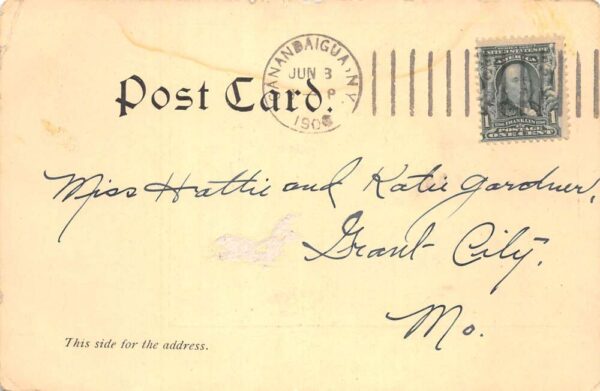 CANANDAIGUA, N.Y.
JUN 3
P
190
SERIES 1902
UNITED STATES OF AMERICA
FRANKLIN
1 1
POSTAGE
ONE CENT
Post Card.
Miss Hattie and Katie Gardner,
Grant City,
Mo.
This side for the address.